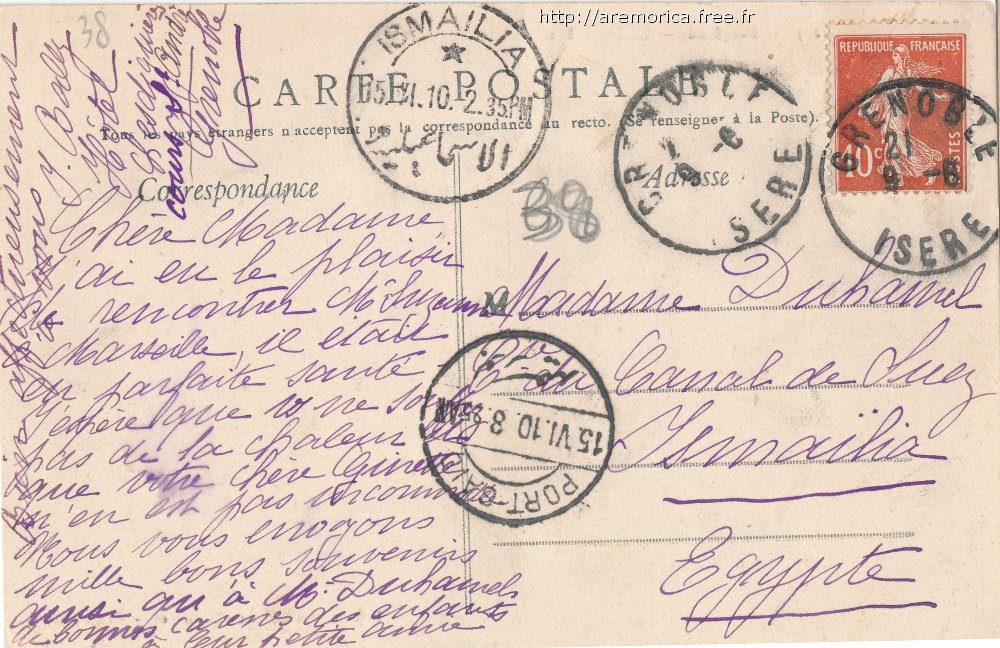 http://aremorica.free.fr
38
ISMAILIA
15.VI.10. 2.35PM
REPUBLIQUE FRANÇAISE
10 C
POSTES
CARTE POSTALE
Tous les pays étrangers n'acceptent pas la correspondance au recto. (Se renseigner à la Poste).
GRENOBLE
ISERE
GRENOBLE
21
9 -6
ISERE
Correspondance
Adresse
38
Chère Madame,
j'ai eu le plaisir
de rencontrer Mr
Marseille, il était
en parfaite santé
J'espère que vous ne
pas de la chaleur et
que votre chère Ginette
n'en est pas incommodée
Nous vous envoyons
mille bons souvenirs
ainsi qu'à Mr Duhamel
de bonnes caresses des enfants
à leur petite amie
Bien affectueusement
Y. Bally
Hôtel
Lesdiguières
cours St André
Grenoble
M Madame Duhamel
Cie du Canal de Suez
Ismaïlia
Egypte
PORT-SAID
15.VI.10 8 25AM